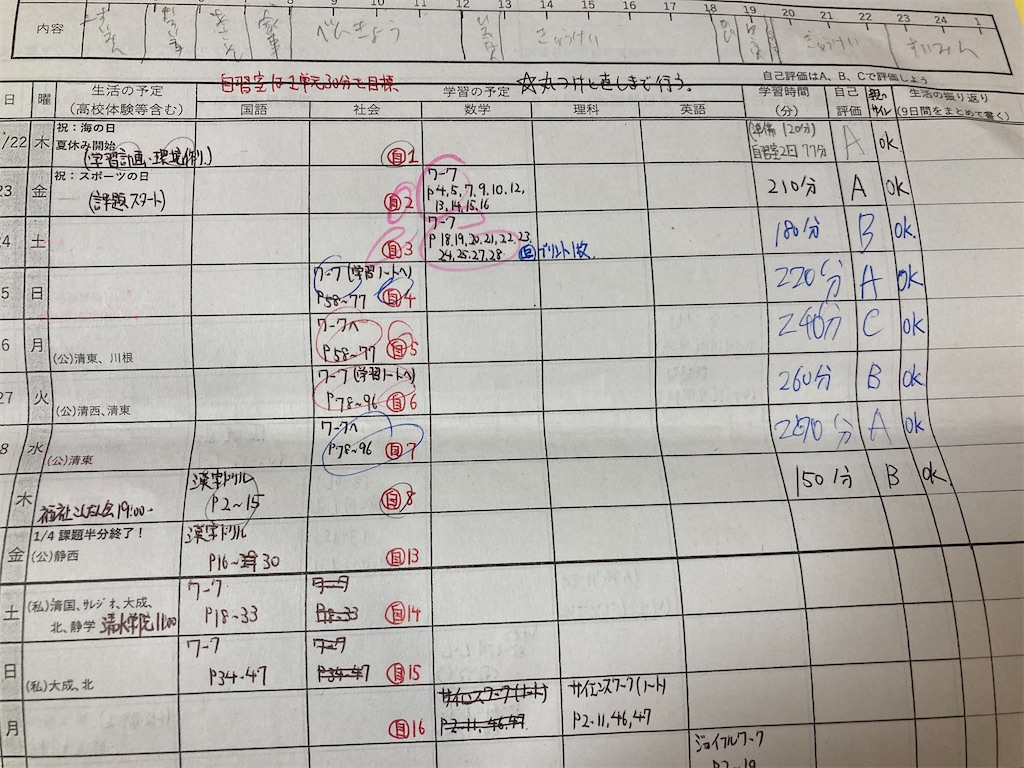 8 9 10 11 12 13 14 15 16 17 18 19 20 21 22 23 24 1
内容
べんきょう
きゅうけい
きゅうけい
すいみん
自習室は1単元30分を目標
☆丸つけと直しまで行う。
自己評価はA、B、Cで評価しよう
日 曜 生活の予定 (高校体験等含む)
学習の予定
国語 社会 数学 理科 英語
学習時間 (分)
自己 評価
親の サイン
生活の振り返り (9日間をまとめて書く)
/22 木 祝：海の日
夏休み開始
(学習計画・環境作り.)
自1
準備 120分)
自習室2日 77分
A
ok.
23 金 祝：スポーツの日
(課題スタート)
自2
ワーク
P4,5,7,9,10,12,
13,14,15,16
210分 A ok
24 土
自3
ワーク
P18,19,20,21,22,23
24,25,27,28
自プリント1枚
180分 B ok.
5 日
ワーク(学習ノートへ)
P58~77 自4
220分 A ok
6 月 (公)清東、川根
ワークへ
P58~77 自5
240分 C ok
27 火 (公)清西、清東
ワーク(学習ノートへ)
P78~96 自6
260分 B ok
8 水 (公)清東
ワークへ
P78~96 自7
分 A ok
木 19:00-
漢字ドリル
P2~15
自8
150分 B ok.
金 1/4 課題半分終了！
(公)静西
漢字ドリル
P16~30
自13
土 (私)清国、サレジオ、大成、
北、静学 清水学院11:00
ワーク
P18-33
ワーク
P18-33
自14
日 (私)大成、北
ワーク
P34-47
ワーク
P34-47
自15
月
自16
サイエンスワーク(ノート)
P2-11,46,47
サイエンスワーク(ノート)
P2-11,46,47
ジョイフルワーク
P2~19